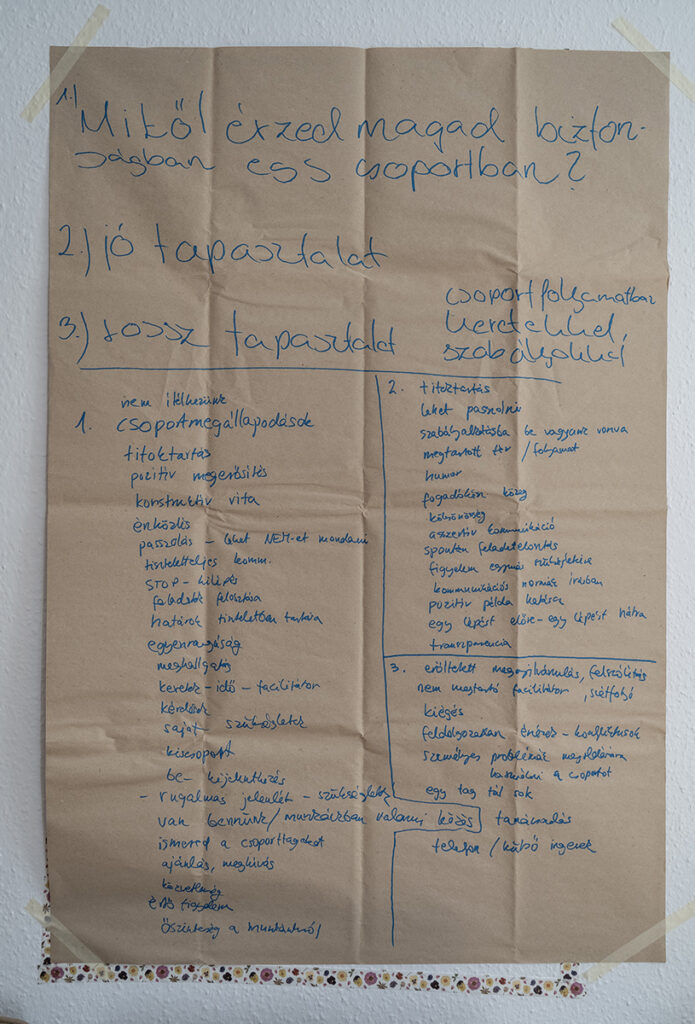 1.) Mitől érzed magad bizton-
ságban egy csoportban?
2.) jó tapasztalat
3.) rossz tapasztalat
csoportfolyamatban
keretekkel,
szabályokkal
nem ítélkezünk
1. csoportmegállapodások
titoktartás
pozitív megerősítés
konstruktív vita
énközlés
passzolás - lehet NEM-et mondani
tiszteletteljes komm.
STOP - kilépés
feladatok felosztása
határok tiszteletben tartása
egyenrangúság
meghallgatás
keretek - idő - facilitátor
kérdések
saját szükségletek
kiscsoport
be- kijelentkezés
- rugalmas jelenlét - szükségletek
van bennünk/munkánkban valami közös
ismered a csoporttagokat
ajánlás, meghívás
közvetlenség
értő figyelem
őszinteség a munkánkról
2. titoktartás
lehet passzolni
szabályalkotásba be vagyunk vonva
megtartott tér / folyamat
humor
fogadókész közeg
kölcsönösség
asszertív kommunikáció
spontán feladatelontás
figyelem egymás szükségleteire
kommunikációs normák írásban
pozitív példa hatása
egy lépést előre - egy lépést hátra
transzparencia
3. erőltetett megnyilvánulás, felszólítás
nem megtartó facilitátor, szétfolyó
kiégés
feldolgozatlan érzések - konfliktusok
személyes problémák megoldására
használni a csoportot
egy tag túl sok
tanácsadás
telefon / külső ingerek